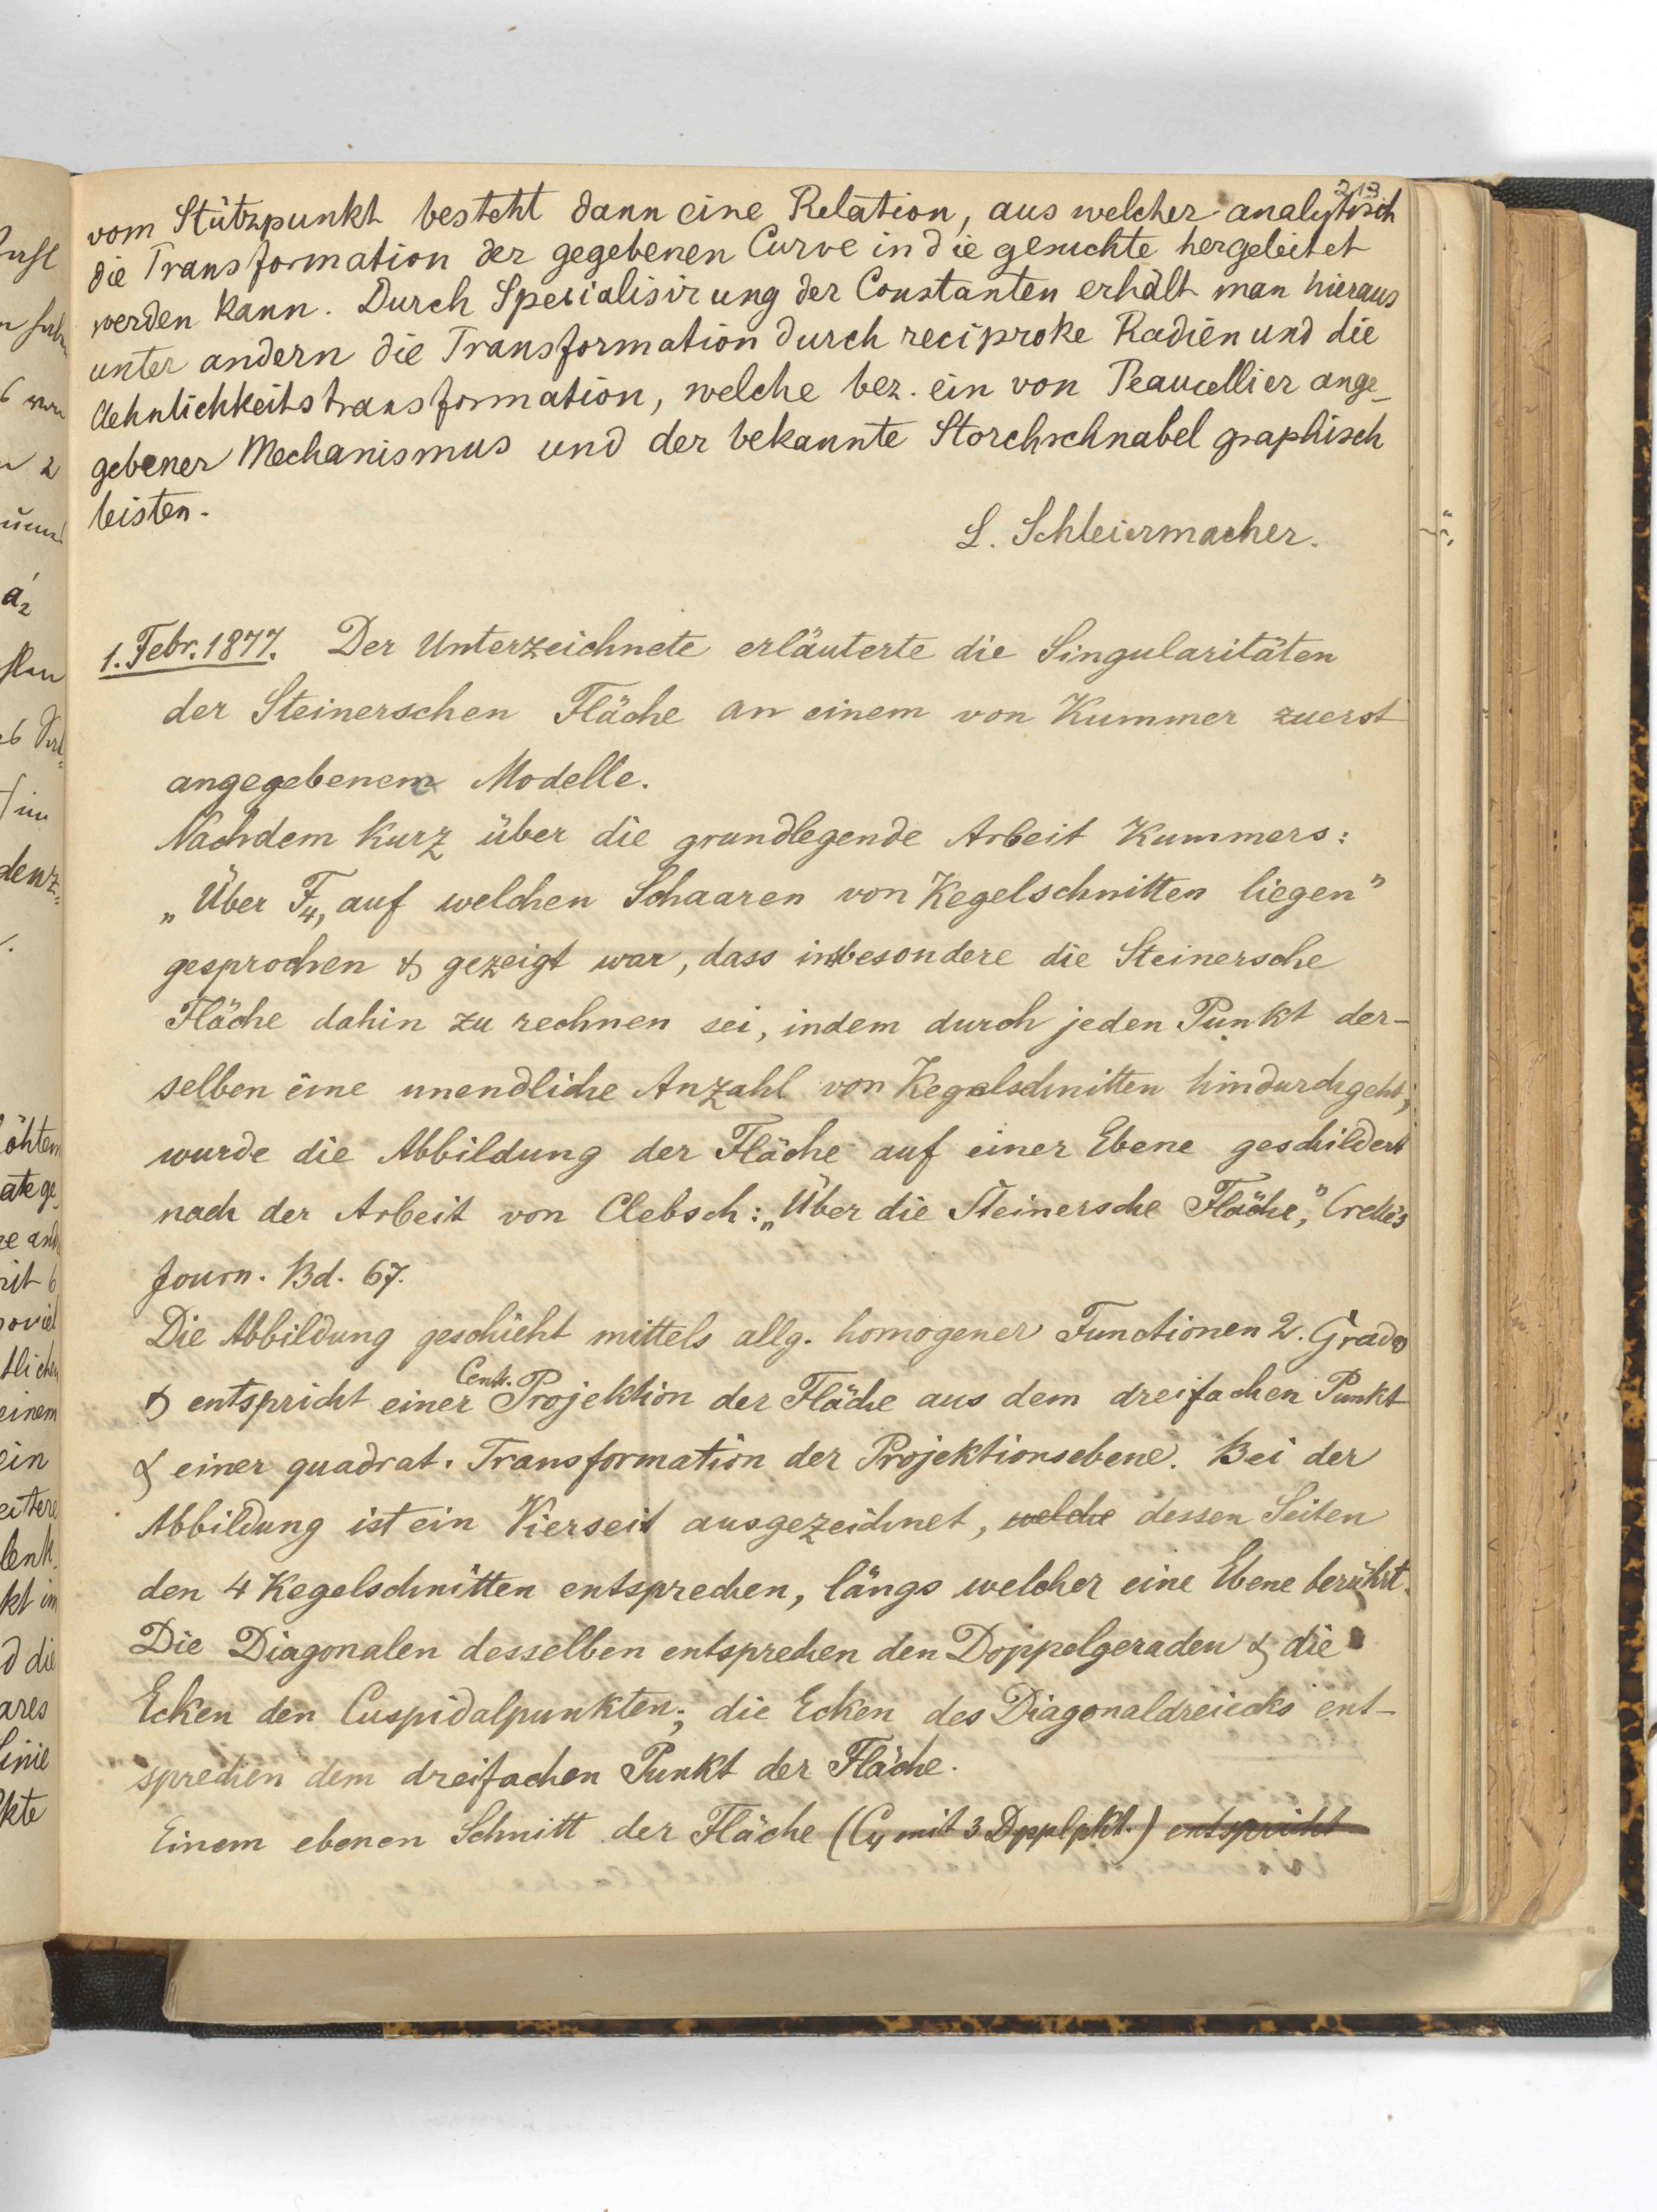 213
vom Stützpunkt besteht dann eine Relation, aus welcher analytisch
die Transformation der gegebenen Curve in die gesuchte hergeleitet
werden kann. Durch Specialisirung der Constanten erhält man hieraus
unter andern die Transformation durch reciproke Radien und die
Aehnlichkeitstransformation, welche bez. ein von Peaucellier ange-
gebener Mechanismus und der bekannte Storchschnabel graphisch
leisten.
L. Schleiermacher.
1. Febr. 1877. Der Unterzeichnete erläuterte die Singularitäten
der Steinerschen Fläche an einem von Kummer zuerst
angegebenem Modelle.
Nachdem kurz über die grundlegende Arbeit Kummers:
„Über F4, auf welchen Schaaren von Kegelschnitten liegen"
gesprochen & gezeigt war, dass insbesondere die Steinersche
Fläche dahin zu rechnen sei, indem durch jeden Punkt der-
selben eine unendliche Anzahl von Kegelschnitten hindurchgeht,
wurde die Abbildung der Fläche auf einer Ebene geschildert
nach der Arbeit von Clebsch: „Über die Steinersche Fläche", Crelle's
Journ. Bd. 67.
Die Abbildung geschieht mittels allg. homogener Functionen 2. Grades
& entspricht einer Centr. Projektion der Fläche aus dem dreifachen Punkt
& einer quadrat. Transformation der Projektionsebene. Bei der
Abbildung ist ein Vierseit ausgezeichnet, welche dessen Seiten
den 4 Kegelschnitten entsprechen, längs welcher eine Ebene berührt.
Die Diagonalen desselben entsprechen den Doppelgeraden & die
Ecken den Cuspidalpunkten; die Ecken des Diagonaldreiecks ent-
sprechen dem dreifachen Punkt der Fläche.
Einem ebenen Schnitt der Fläche (C4 mit 3 Dpplpkt.) entspricht